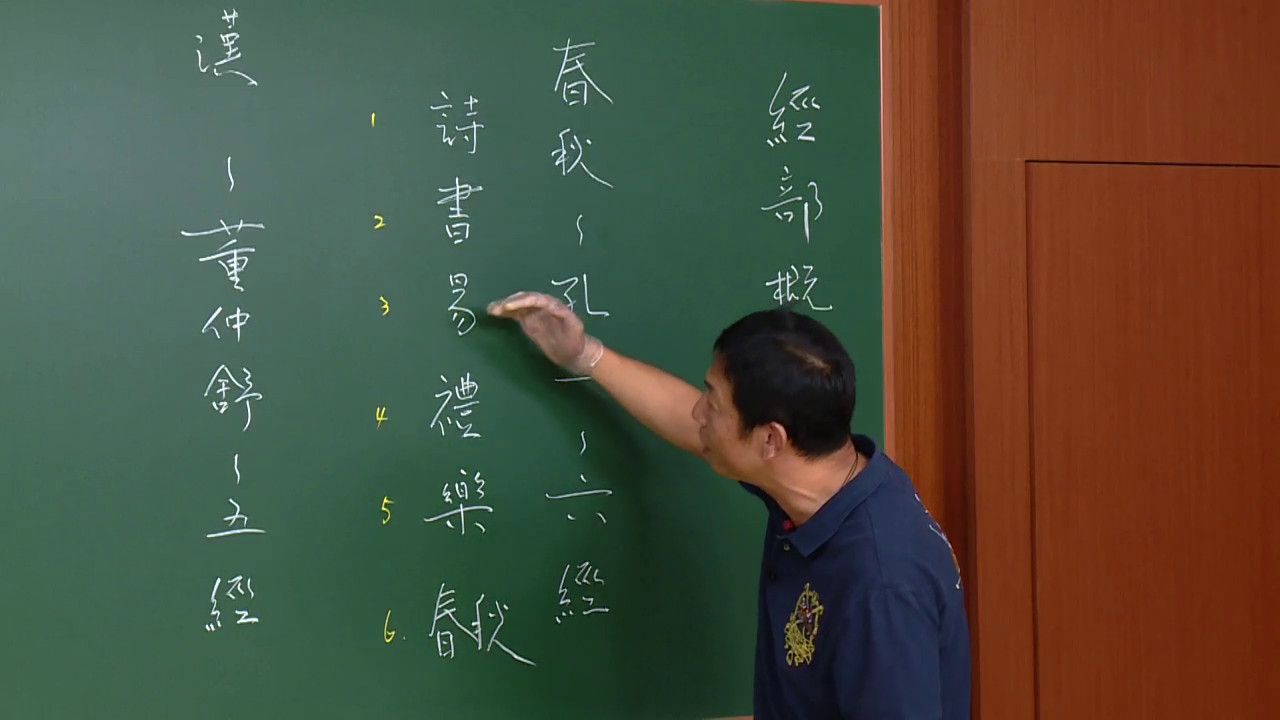 經部概
春秋~孔~六經
詩書易禮樂春秋
1 2 3 4 5 6.
漢~董仲舒~五經